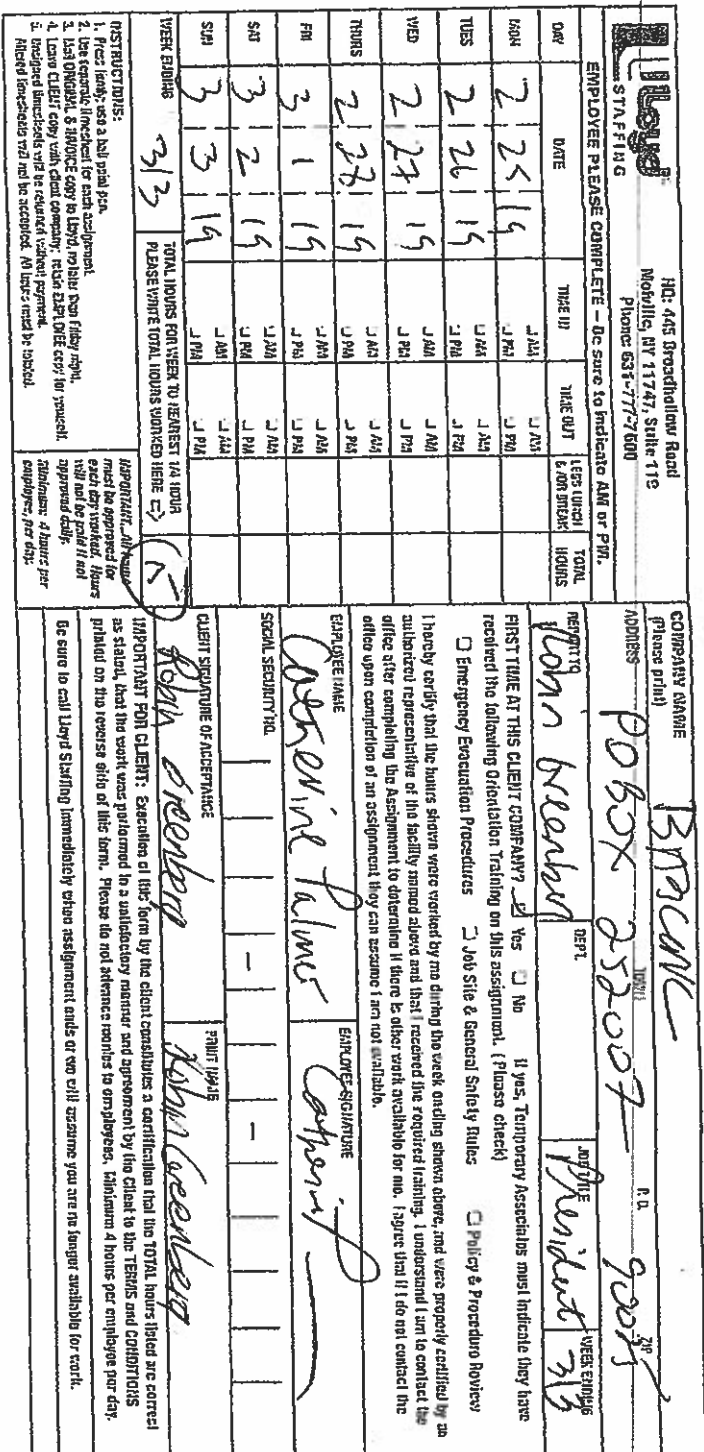 Lloyd
STAFFING
HQ: 445 Broadhollow Road
Melville, NY 11747, Suite 119
Phone: 631-777-7600
EMPLOYEE PLEASE COMPLETE – Be sure to indicate AM or PM.
DAY DATE TIME IN TIME OUT LESS LUNCH &/OR BREAK TOTAL HOURS
MON 2 25 19 AM PM AM PM
TUES 2 26 19 AM PM AM PM
WED 2 27 19 AM PM AM PM
THURS 2 28 19 AM PM AM PM
FRI 3 1 19 AM PM AM PM
SAT 3 2 19 AM PM AM PM
SUN 3 3 19 AM PM AM PM
WEEK ENDING 3/3
TOTAL HOURS FOR WEEK TO NEAREST 1/4 HOUR
PLEASE WRITE TOTAL HOURS WORKED HERE
INSTRUCTIONS:
1. Press firmly; use a ball point pen.
2. Use separate timesheet for each assignment.
3. Mail ORIGINAL & INVOICE copy to Lloyd, no later than Friday night.
4. Leave CLIENT copy with client company; retain EMPLOYEE copy for yourself.
5. Unsigned timesheets will be returned without payment.
Altered timesheets will not be accepted. All hours must be totaled.
IMPORTANT: All hours
must be approved for
each day worked. Hours
will not be paid if not
approved daily.
Minimum: 4 hours per
employee, per day.
COMPANY NAME
(Please print)
ADDRESS PO BOX 252007 TOWN P.O. ZIP
REPORT TO Robin DEPT. JOB TITLE President WEEK ENDING 3/3
FIRST TIME AT THIS CLIENT COMPANY? Yes No If yes, Temporary Associates must indicate they have
received the following Orientation Training on this assignment. (Please check)
Emergency Evacuation Procedures Job Site & General Safety Rules Policy & Procedure Review
I hereby certify that the hours shown were worked by me during the week ending shown above, and were properly certified by an
authorized representative of the facility named above and that I received the required training. I understand I am to contact the
office after completing the Assignment to determine if there is other work available for me. I agree that if I do not contact the
office upon completion of an assignment they can assume I am not available.
EMPLOYEE NAME Catherine Palmer EMPLOYEE SIGNATURE
SOCIAL SECURITY NO. – –
CLIENT SIGNATURE OF ACCEPTANCE Robin Greenberg PRINT NAME Robin Greenberg
IMPORTANT FOR CLIENT: Execution of this form by the client constitutes a certification that the TOTAL hours listed are correct
as stated, that the work was performed in a satisfactory manner and agreement by the Client to the TERMS and CONDITIONS
printed on the reverse side of this form. Please do not advance monies to employees. Minimum 4 hours per employee per day.
Be sure to call Lloyd Staffing immediately when assignment ends or we will assume you are no longer available for work.